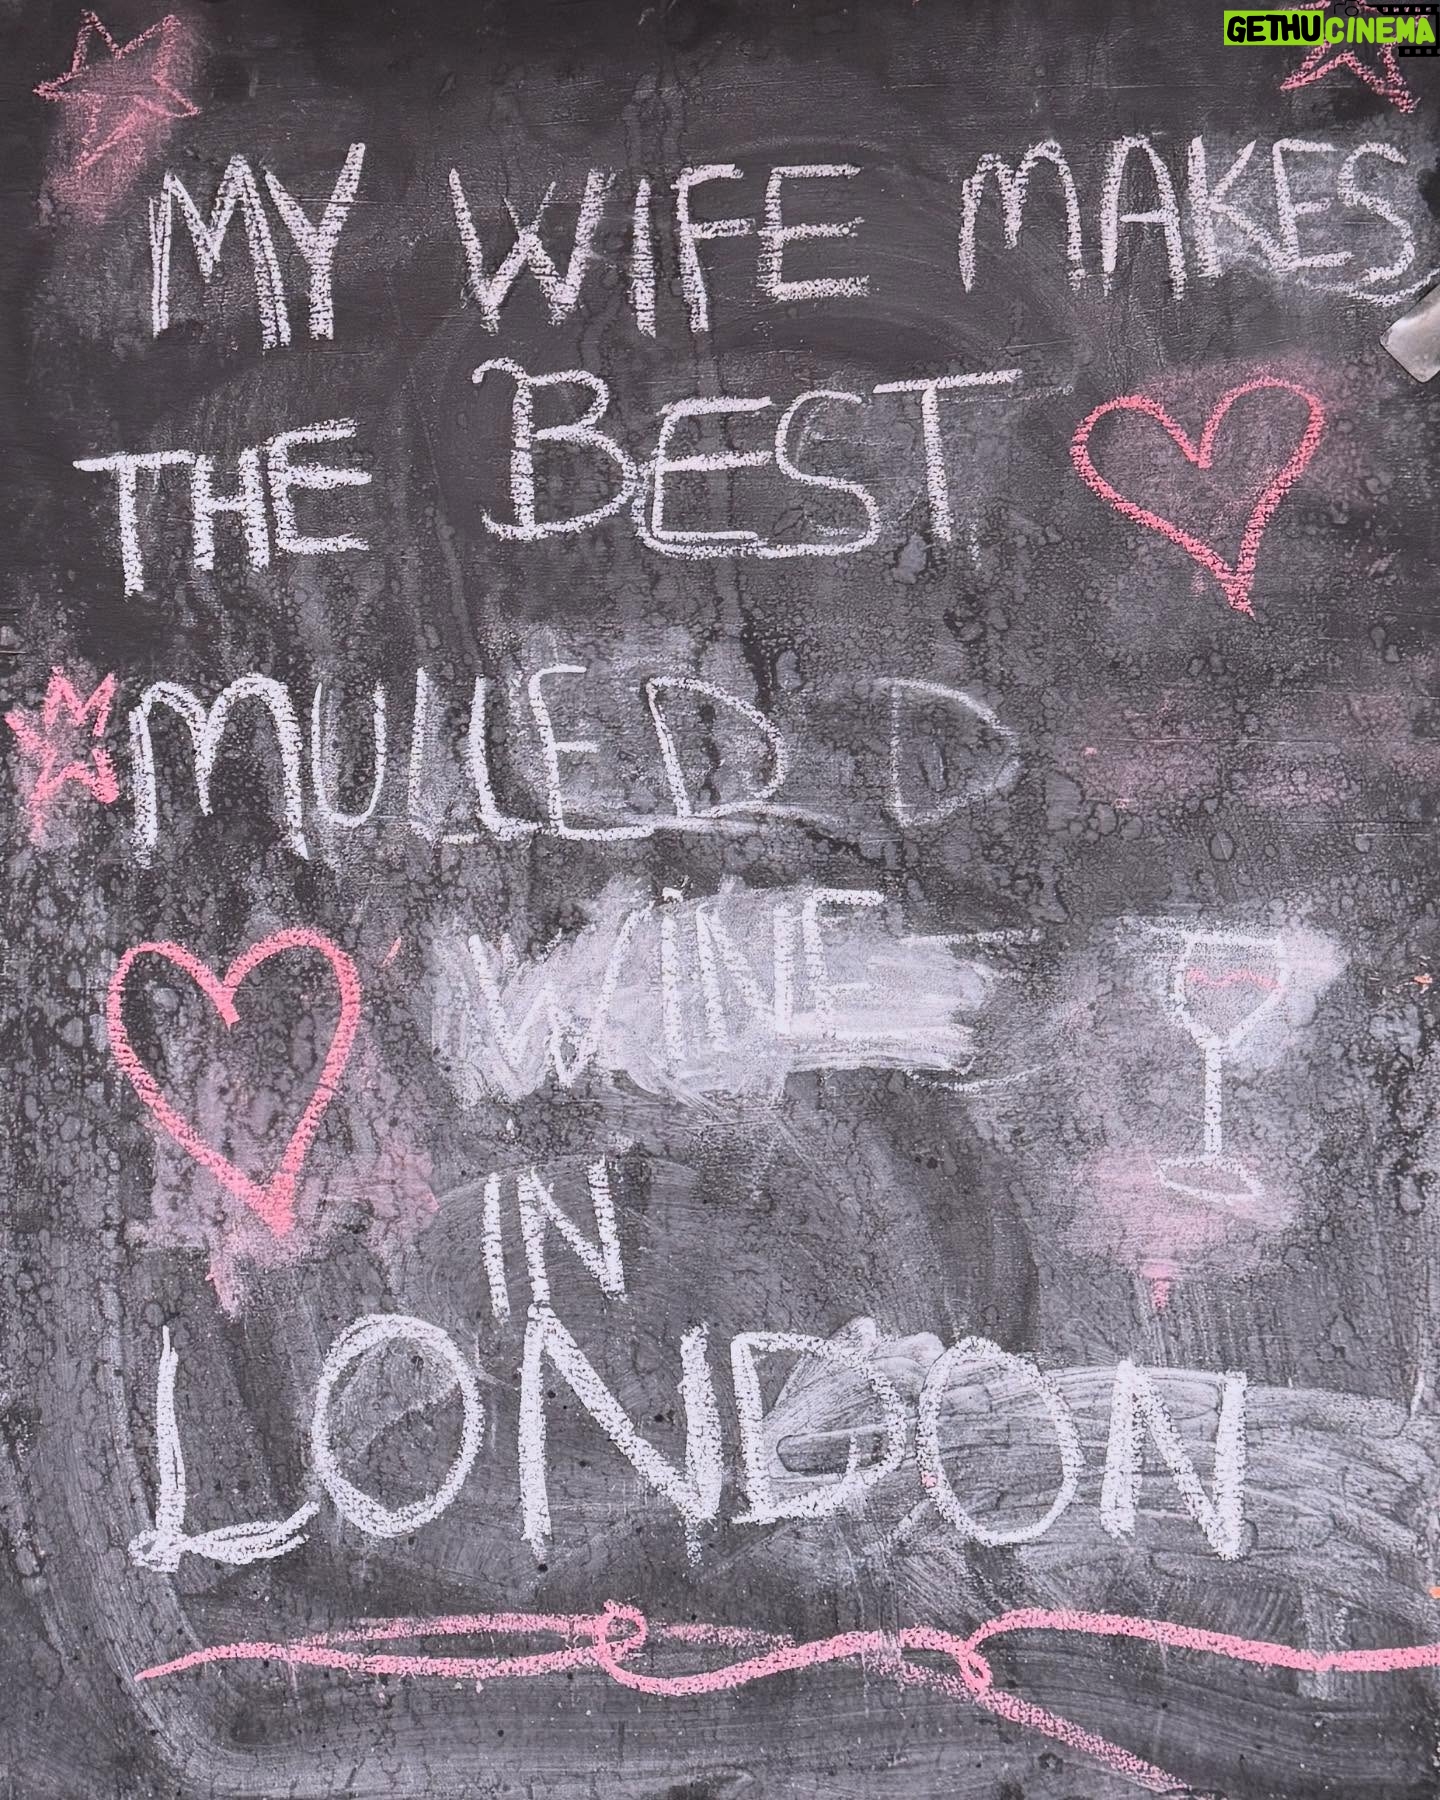 GETHUCINEMA
MY WIFE MAKES
THE BEST
MULLED D
WINE
IN
LONDON